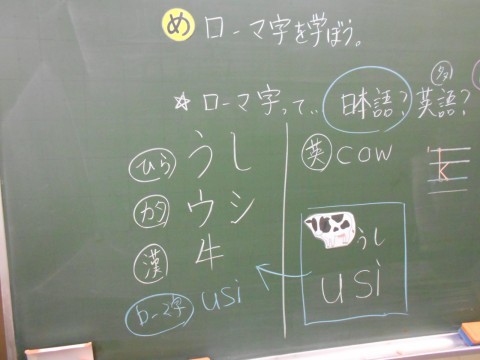 め ローマ字を学ぼう。
☆ ローマ字って.. 日本語? 英語?
ひら うし
カタ ウシ
漢 牛
ローマ字 usi
英 cow
k
うし
usi